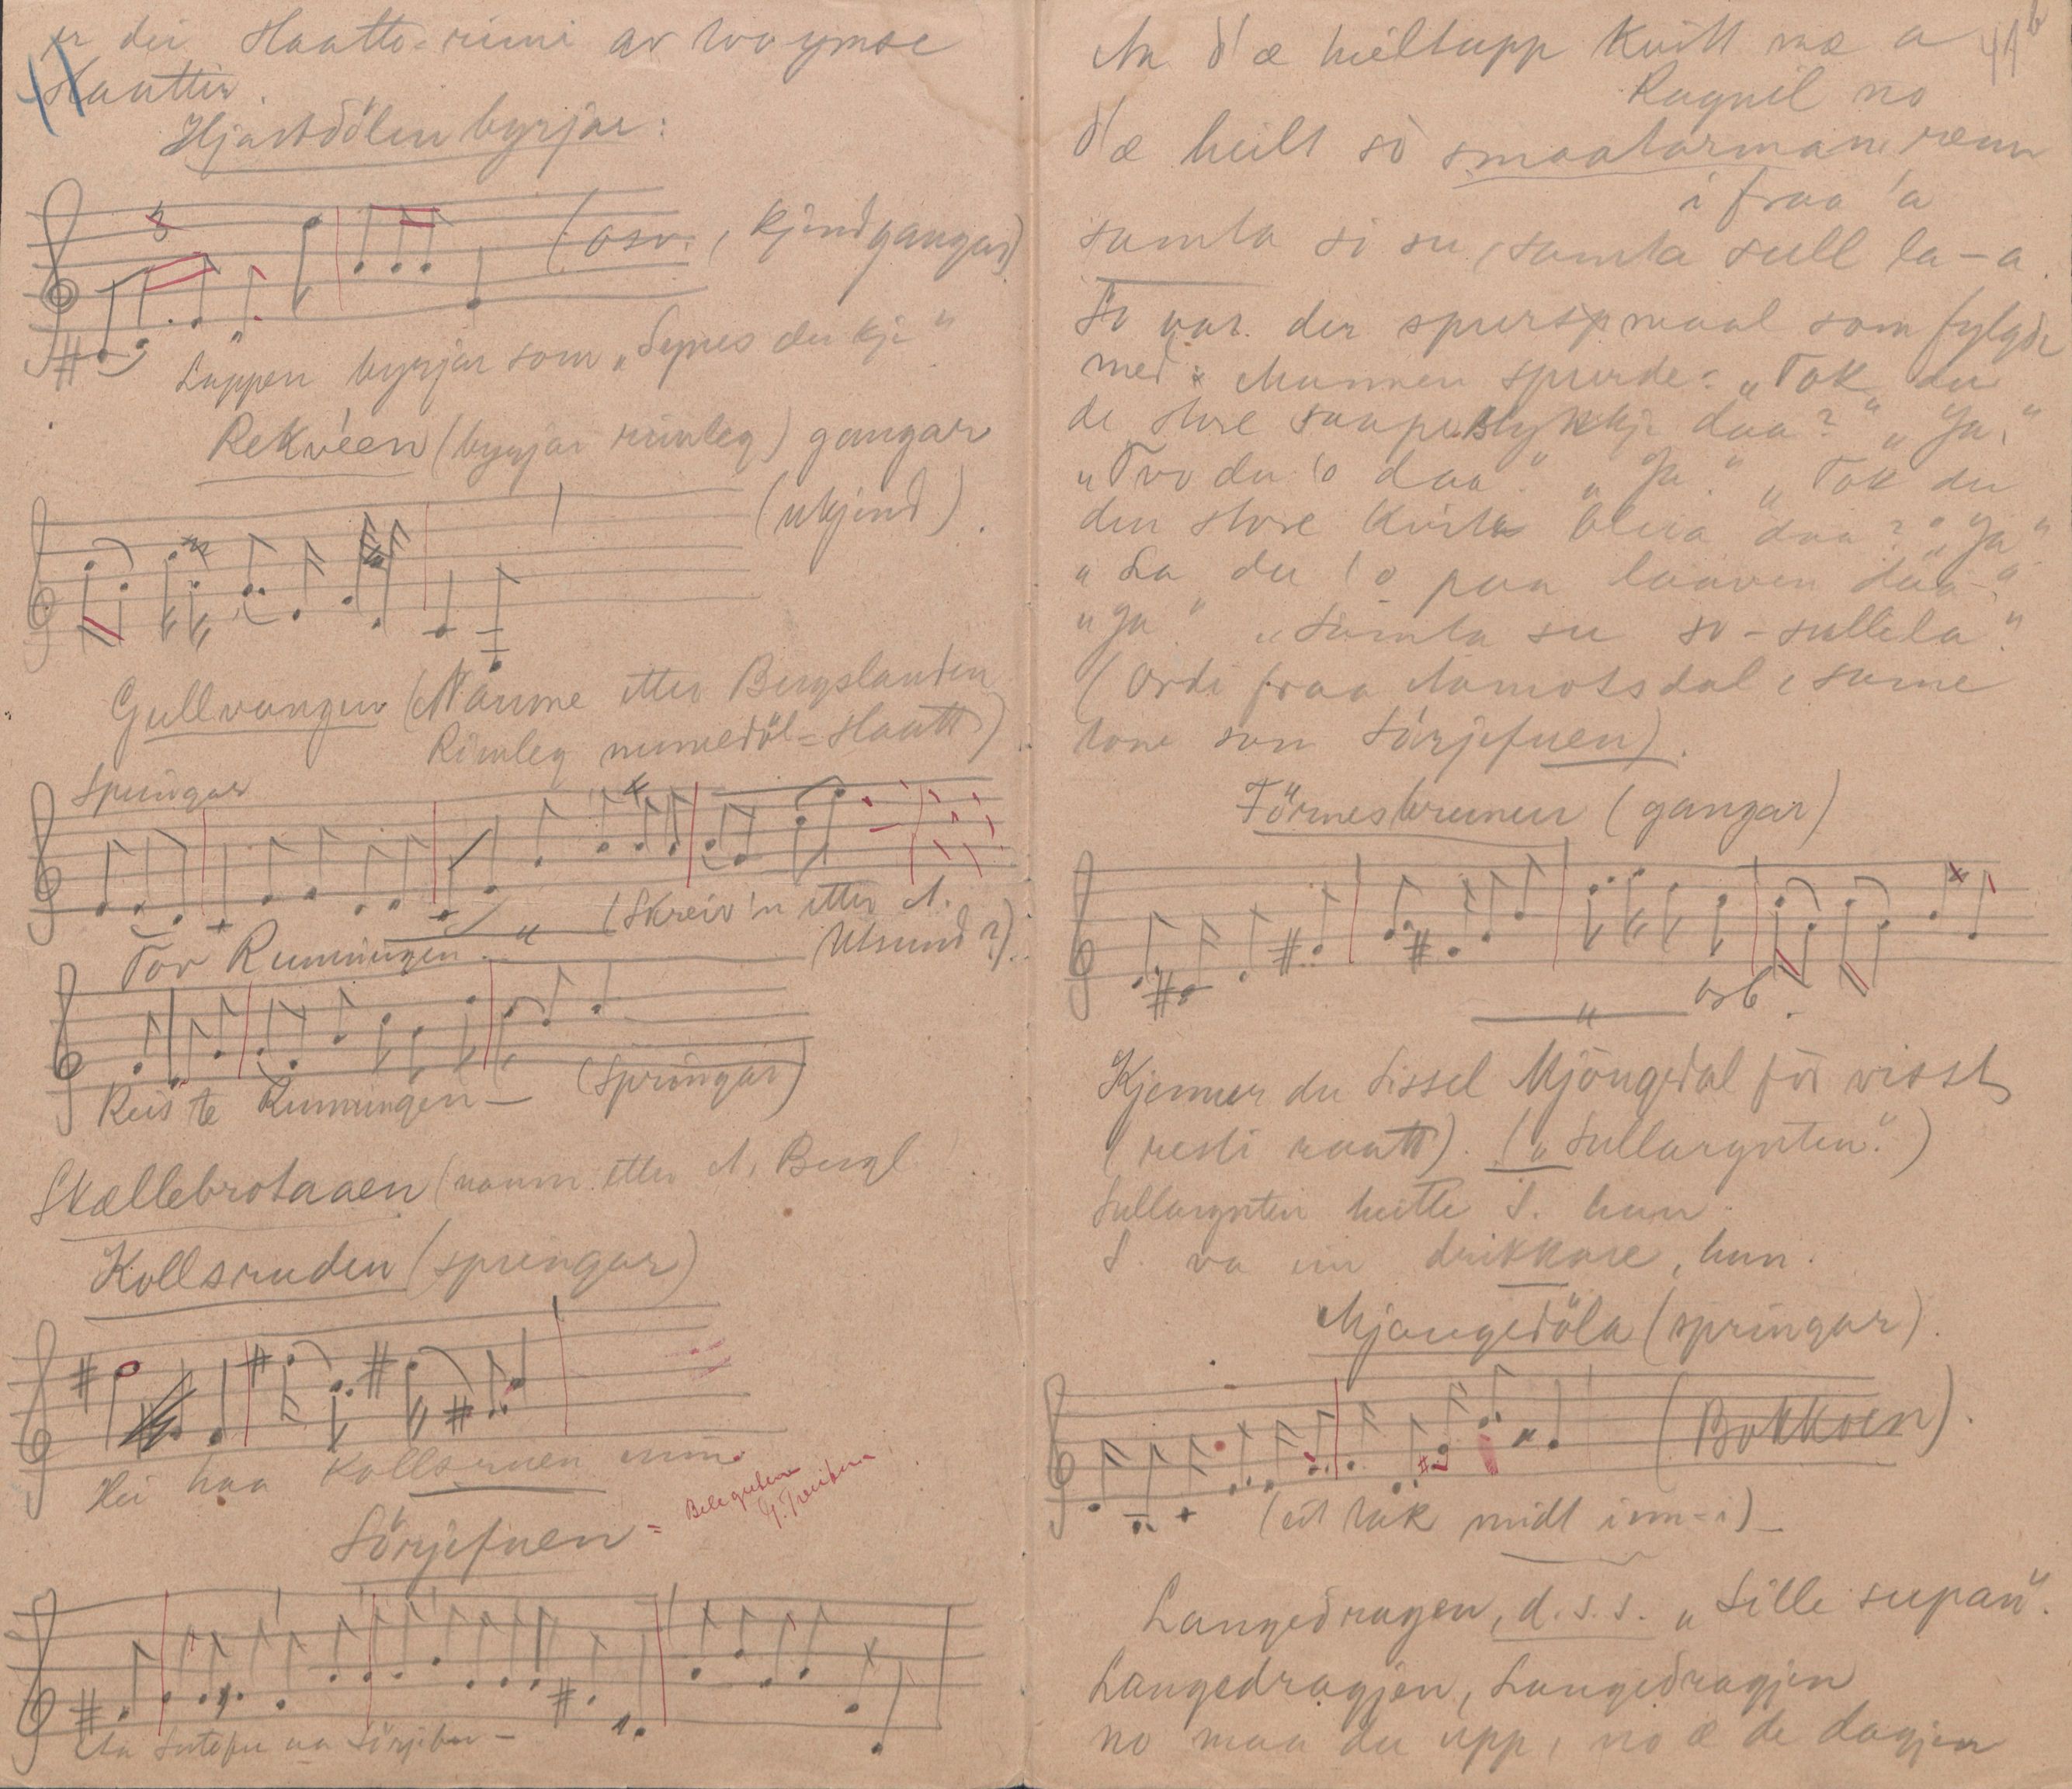 er dei Slaatte-rimi av two ymse
Slaattir.
11
Hjartdölen byrjar:
(osv., kjend gangar)
Luppen byrjar som „Synes du kje"
Rekvéen (byrjar rimleg) gangar
(ukjend).
Gullvangen (Namne etter Bergslanden
Rimleg numedöl-Slaatt)
Springar
(Skreiv 'n etter A.
Ulsund?).
Tov Runningen
Reis te Runningen — (springar)
Skællebrotaaen (namn etter A. Bergl
Kollsruden (springar)
Hei haa Kollsruen min
Sörjefuen =
Aa Sutefu aa Sörjefu —
41b
Aa d'æ heiltupp kvitt mæ a
Ragnil no
d'æ heilt so smaatarmane renn
i fraa 'a
sumla si su, sumla sull la-a.
So var der spursmaal som fylgde
med: Mannen spurde: „Tok du
de store saapestykkje daa?" „Ja."
„Tvo du 'o daa." „Ja." „Tok du
den store kvite bleia daa?" „Ja"
„La du 'o paa laaven daa-?"
„Ja." „Sumla su so-sullela."
(Ordi fraa Aamotsdal, same
tone som Sörjefuen).
Förnesbrunen (gangar)
osv.
Kjenner du Sissel Mjöngedal för visst
(resti raatt). („Sullarguten.")
Sullarguten heitte S. han.
S. va ein drikkare, han.
Mjongedöla (springar).
(Bokkoen).
(eit tak midt inn-i) —
Langedragen, d.s.s. „Sille supan".
Langedragjen, Langedragjen
no maa du upp, no æ de dagjen